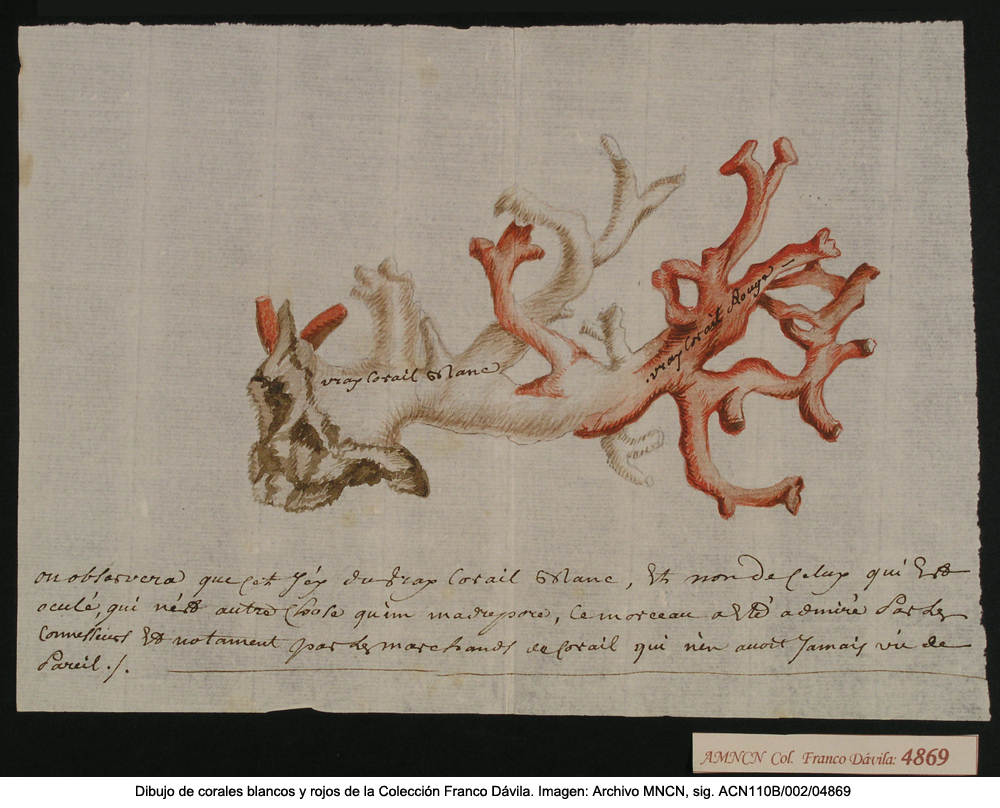 vray Corail Blanc
vray Corail Rouge
on observera que cet Icy du vray Corail Blanc, Et non de Celuy qui Est
oculé, qui n'est autre Chose qu'un madrepore, Ce morceau a Eté admiré Par les
Connesseurs Et notament par les marchands de Corail qui n'en avoit Jamais vû de
Pareil ./.
AMNCN Col. Franco Dávila: 4869
Dibujo de corales blancos y rojos de la Colección Franco Dávila. Imagen: Archivo MNCN, sig. ACN110B/002/04869